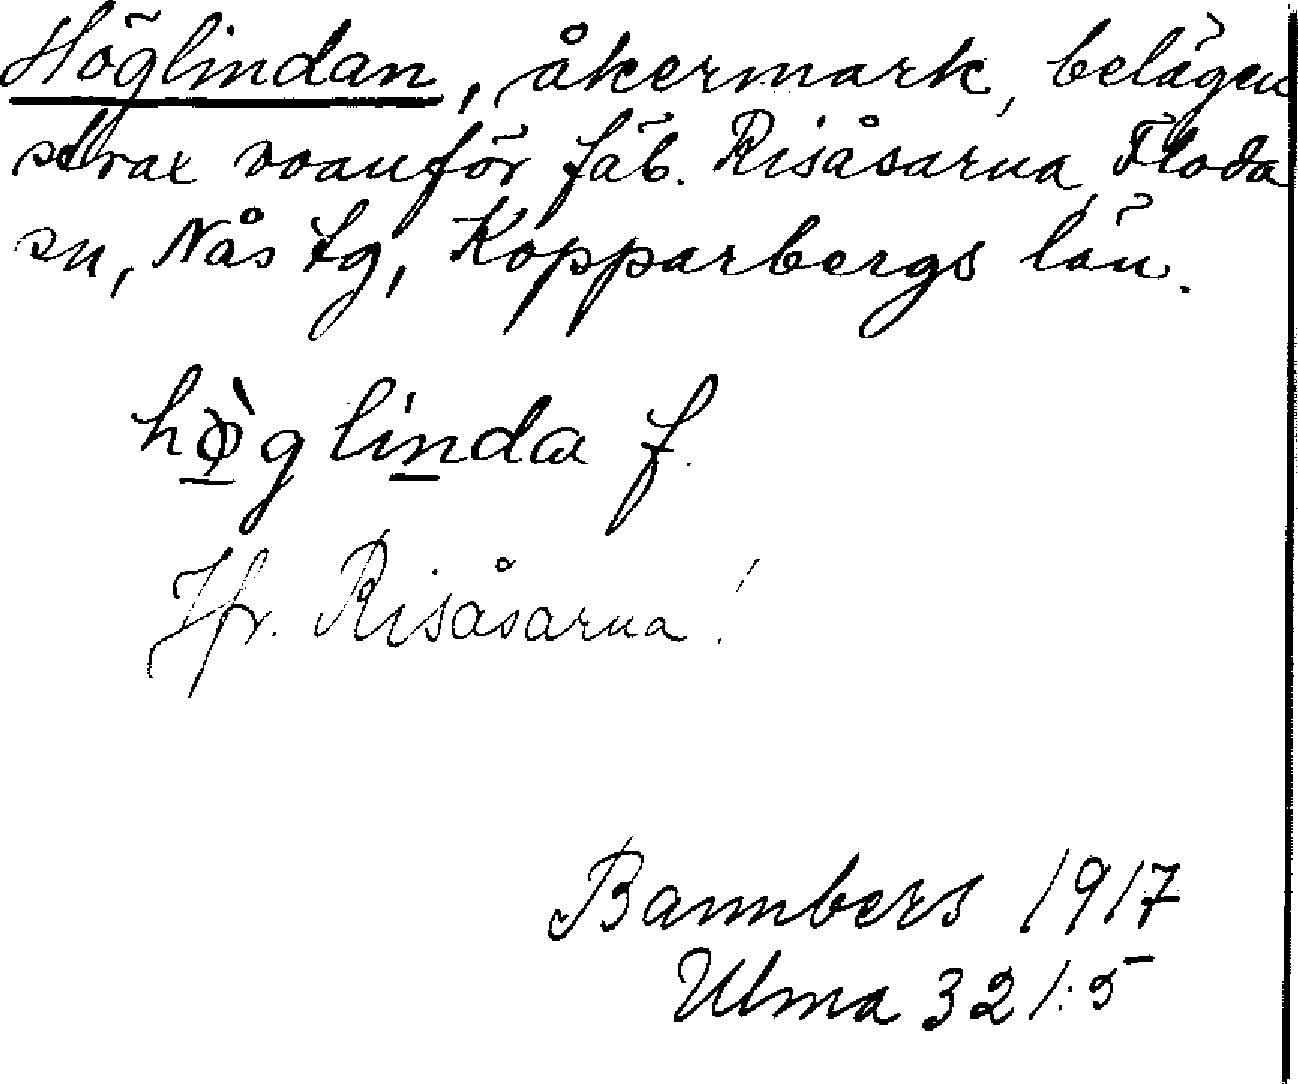 Höglindan, åkermark, belägen
strax ovanför fäb. Risåsarna, Floda
sn, Nås tg, Kopparbergs län.
hø̀glìnda f.
Jfr. Risåsarna!
Bannbers 1917
Ulma 321:5